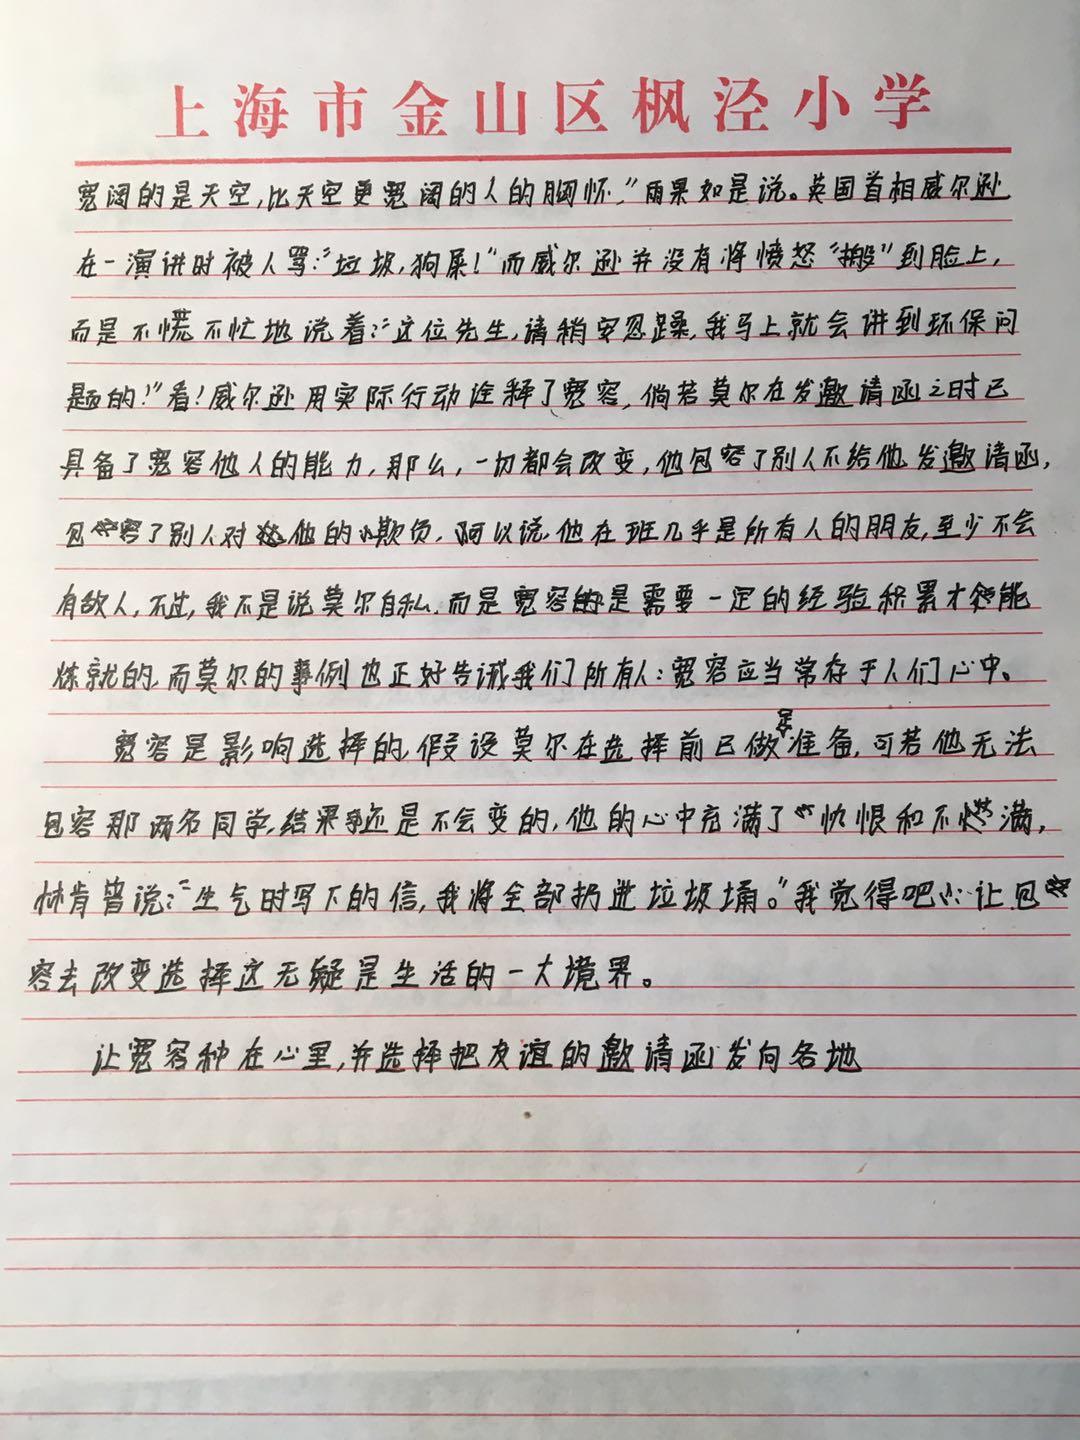 上海市金山区枫泾小学
宽阔的是天空,比天空更宽阔的人的胸怀,”雨果如是说。英国首相威尔逊
在一演讲时被人骂:“垃圾,狗屎!”而威尔逊并没有将愤怒“搬”到脸上,
而是不慌不忙地说着:“这位先生,请稍安忽躁,我马上就会讲到环保问
题的!”看!威尔逊用实际行动诠释了宽容,倘若莫尔在发邀请函之时已
具备了宽容他人的能力,那么,一切都会改变,他包容了别人不给他发邀请函,
包容了别人对他的欺负,可以说,他在班几乎是所有人的朋友,至少不会
有敌人,不过,我不是说莫尔自私,而是宽容是需要一定的经验积累才能
炼就的,而莫尔的事例也正好告诫我们所有人:宽容应当常存于人们心中。
宽容是影响选择的,假设莫尔在选择前已做足准备,可若他无法
包容那两名同学,结果还是不会变的,他的心中充满了仇恨和不满,
林肯曾说:“生气时写下的信,我将全部扔进垃圾埇。”我觉得吧,让包
容去改变选择这无疑是生活的一大境界。
让宽容种在心里,并选择把友谊的邀请函发向各地